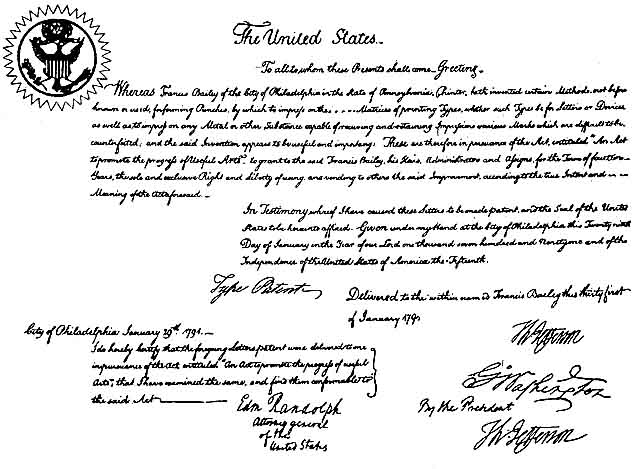 The United States.
To all to whom these Presents shall come Greeting.
Whereas Francis Bailey of the City of Philadelphia in the State of Pennsylvania, Printer, hath invented certain Methods, not before
known or used, for forming Punches, by which to impress on the Matrices of printing Types, whether such Types be for Letters or Devices
as well as to impress on any Metal or other Substance capable of receiving and retaining Impressions various Marks which are difficult to be
counterfeited; and the said Invention appears to be useful and important; These are therefore in pursuance of the Act, entituled "An Act
to promote the progress of Useful Arts" to grant to the said Francis Bailey, his Heirs, Administrators and Assigns for the Term of fourteen
Years, the sole and exclusive Right and Liberty of using, and vending to others the said Improvement, according to the true Intent and
Meaning of the Act aforesaid.
In Testimony whereof I have caused these Letters to be made patent, and the Seal of the United
States to be hereunto affixed. Given under my Hand at the City of Philadelphia this Twenty ninth
Day of January in the Year of our Lord one thousand seven hundred and Ninety one and of the
Independence of the United States of America the Fifteenth.
Type Patent
Delivered to the within named Francis Bailey this thirty first
of January 1791
Th: Jefferson
City of Philadelphia January 29th. 1791.
I do hereby certify that the foregoing letters patent were delivered to me
in pursuance of the act, entituled "An Act to promote the progress of useful
Arts", that I have examined the same, and find them conformable to
the said Act
Edm Randolph
Attorney general
of the
United States
G Washington
By the President
Th: Jefferson